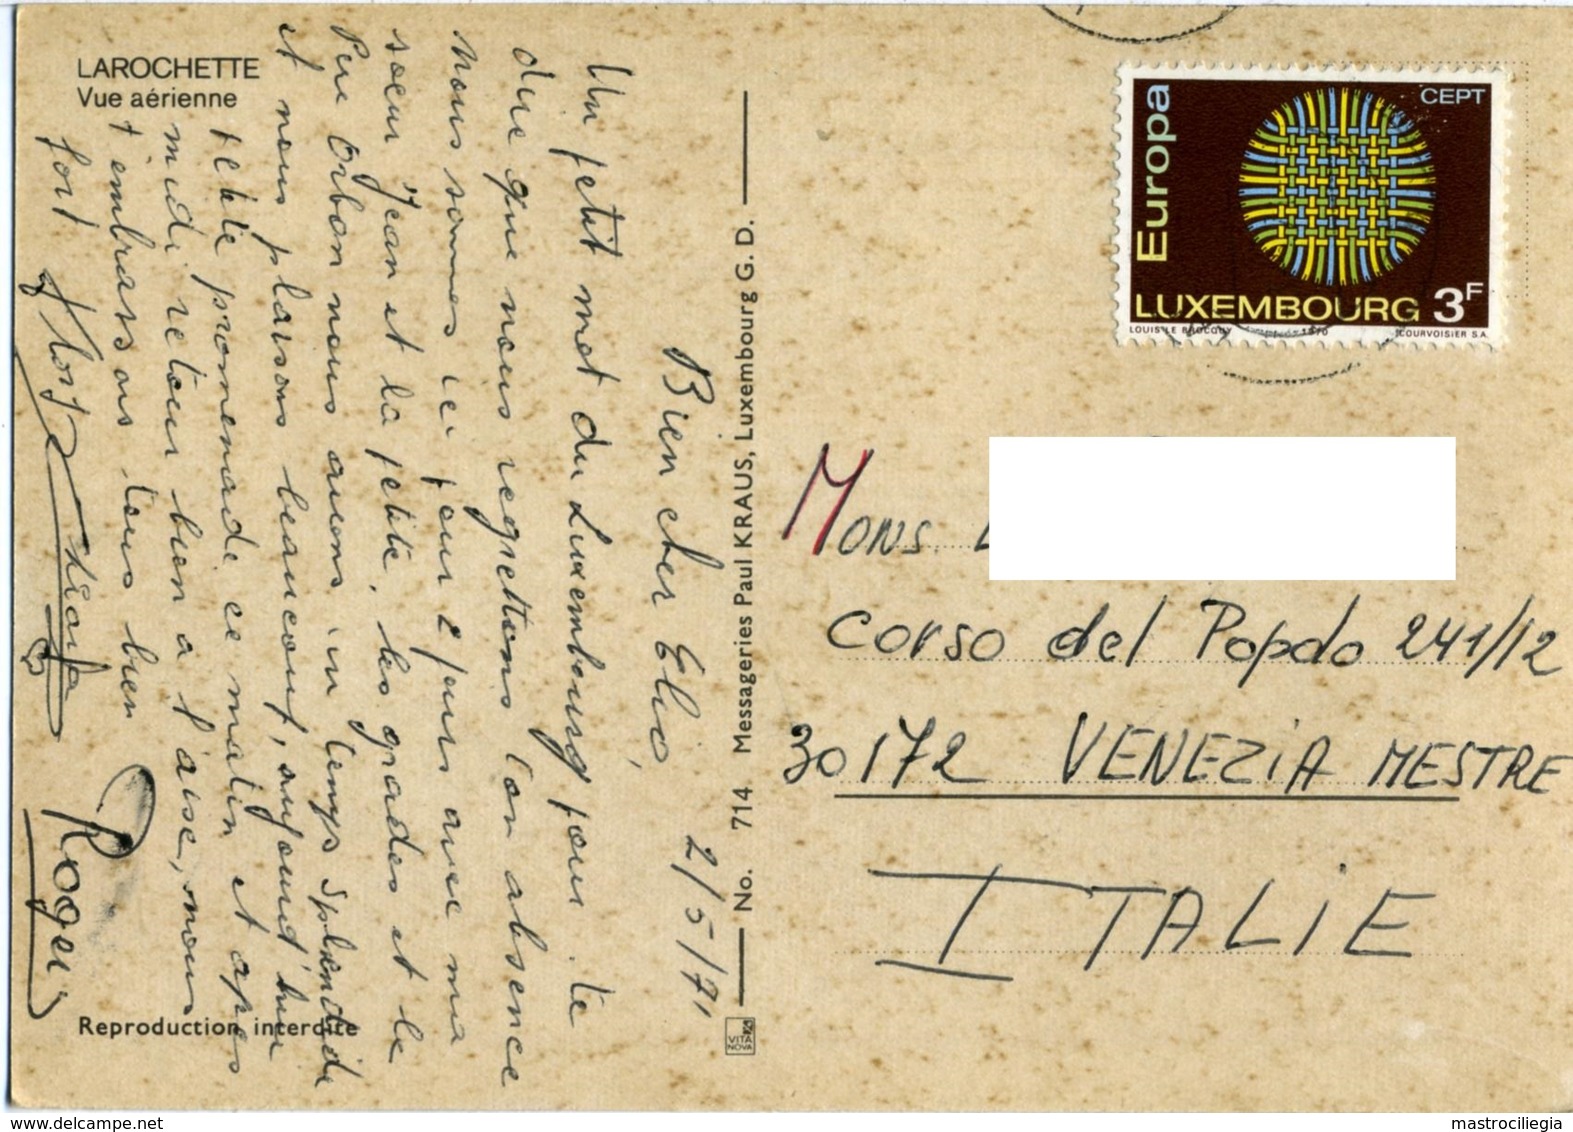 LAROCHETTE
Vue aérienne
2/5/71
Bien cher Elio,
Un petit mot du Luxembourg pour te
dire que nous regrettons ton absence
nous sommes ici pour 2 jours avec ma
soeur, Jean et la petite, les grades et le
Père Orban nous avons un temps splendide
et nous plaisons beaucoup, aujourd'hui
petite promenade ce matin et apres
midi retour bien a l'aise, nous
t'embrassons tous bien
fort
Roger
Reproduction interdite
No. 714 Messageries Paul KRAUS, Luxembourg G. D.
VITA
NOVA
Europa
CEPT
LUXEMBOURG 3F
LOUIS LE BROCQUY 1970 COURVOISIER S.A.
MONS.
Corso del Popolo 241/12
30172 VENEZIA MESTRE
ITALIE
www.delcampe.net
mastrociliegia